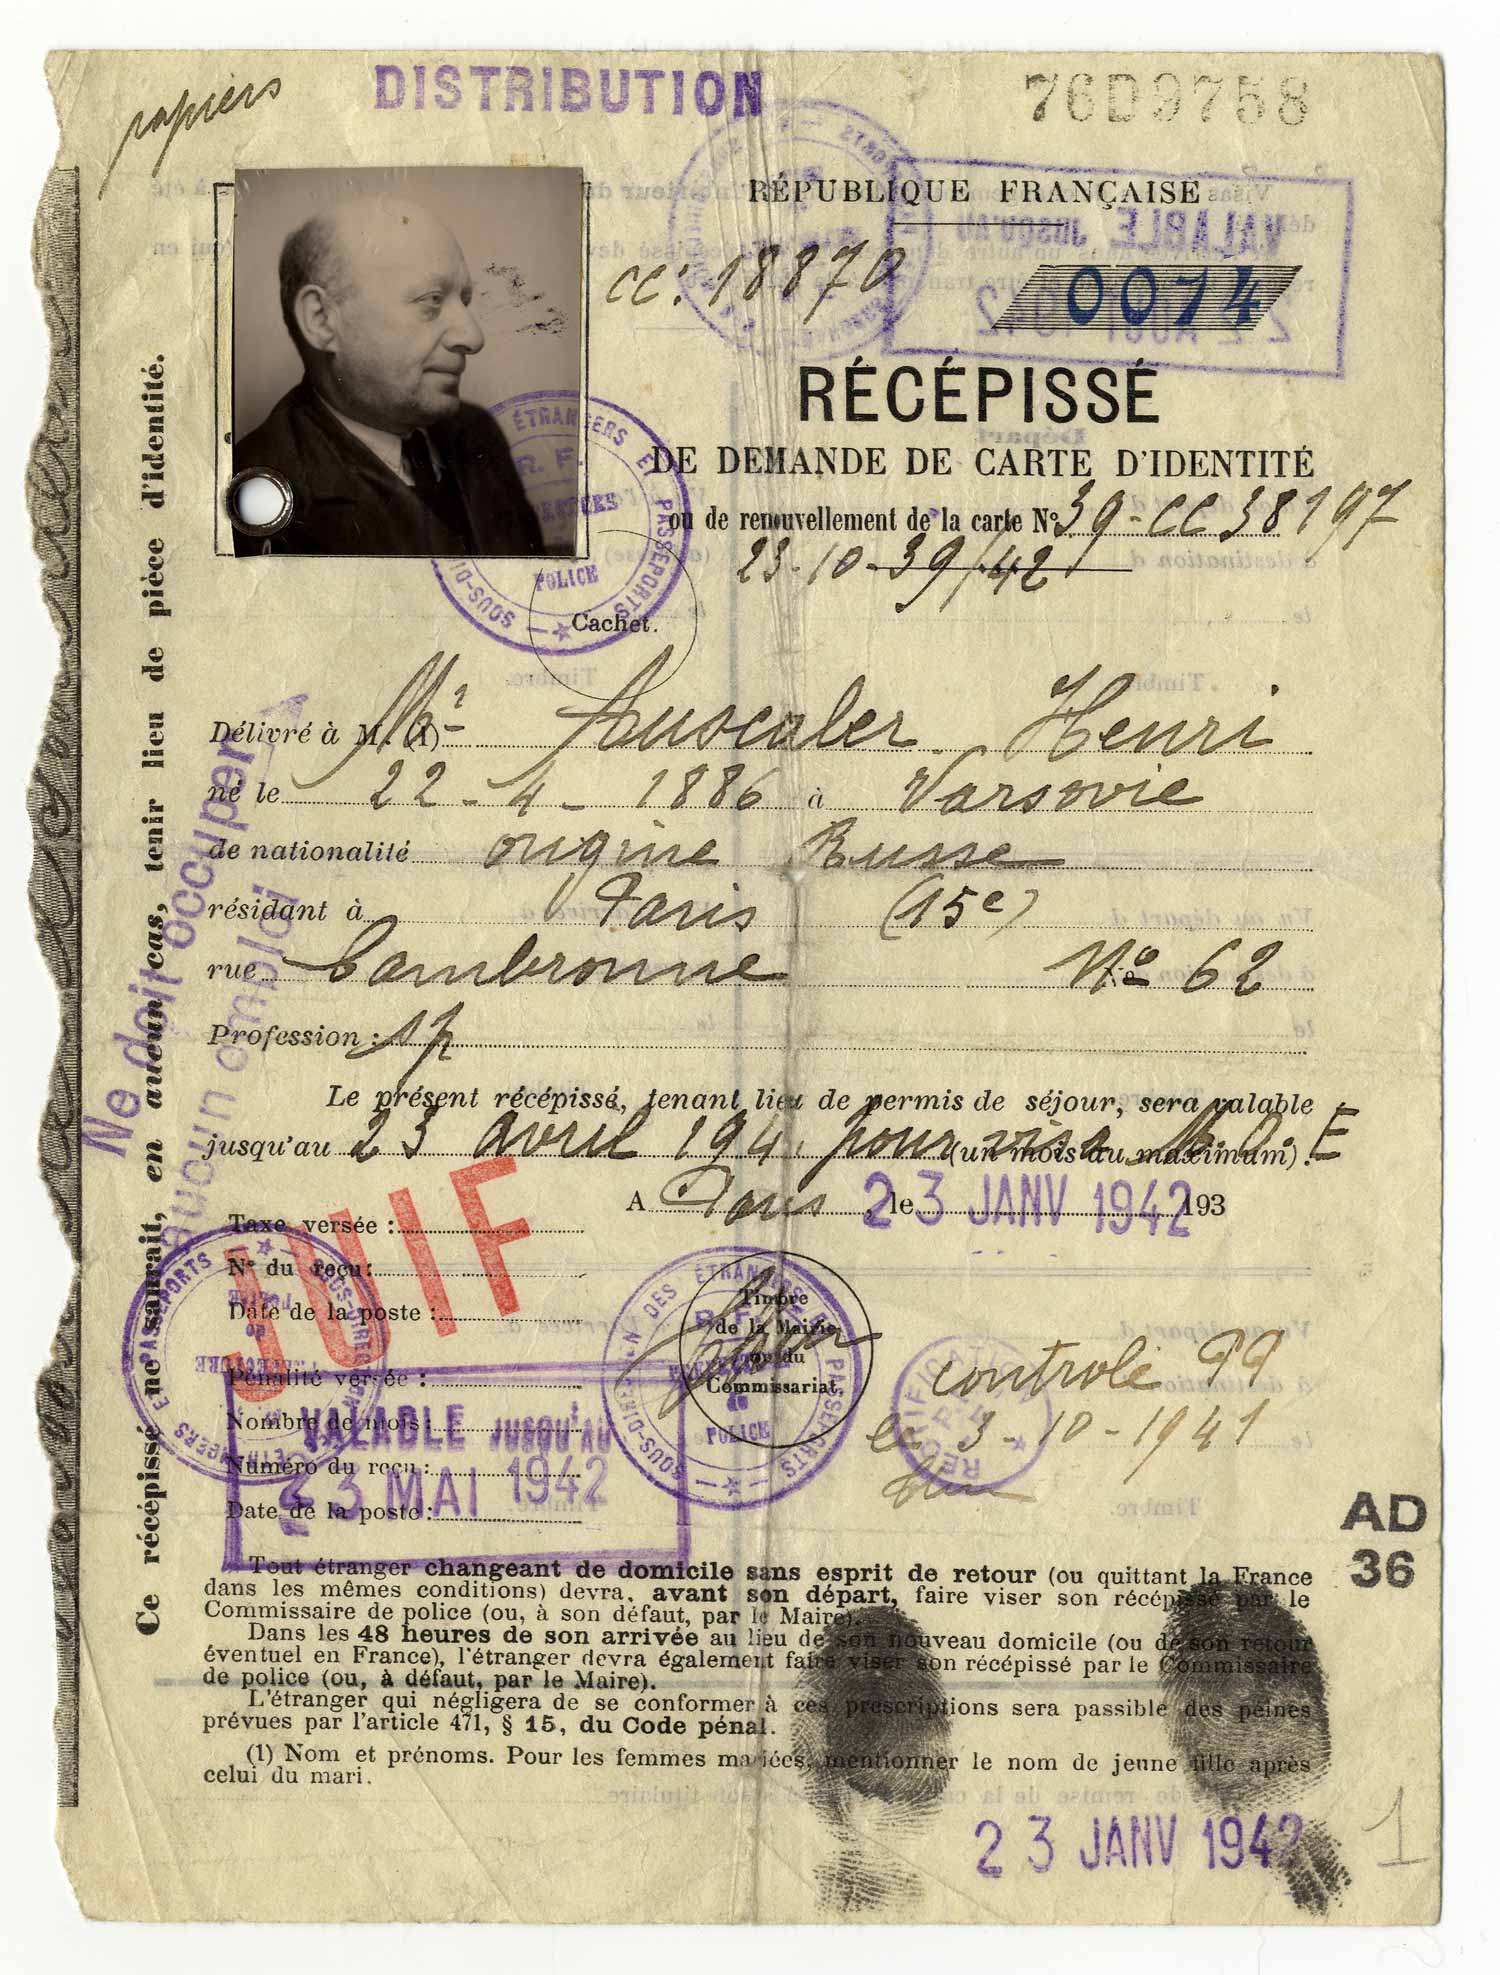 papiers
DISTRIBUTION
76D9758
RÉPUBLIQUE FRANÇAISE
cc: 18870
0074
RÉCÉPISSÉ
DE DEMANDE DE CARTE D'IDENTITÉ
ou de renouvellement de la carte No 39-CC 38197
23-10-39/42
Cachet.
SOUS-DIRECTION DES ÉTRANGERS ET PASSEPORTS
R. F.
POLICE
Délivré à M. (1) Mr Auscaler Henri
né le 22-4-1886 à Varsovie
de nationalité origine Russe
résidant à Paris (15e)
rue Cambronne No 62
Profession : sp
Le présent récépissé, tenant lieu de permis de séjour, sera valable
jusqu'au 23 avril 194 pour visa (un mois au maximum). E
A Paris, le 193
23 JANV 1942
JUIF
Taxe versée :
No du reçu :
Date de la poste :
Pénalité versée :
Nombre de mois :
Numéro du reçu :
Date de la poste :
VALABLE JUSQU'AU
23 MAI 1942
Timbre
de la Mairie
ou du
Commissariat.
SOUS-DIRECTION DES ÉTRANGERS PASSEPORTS
R. F.
POLICE
controle 99
le 3-10-1941
AD
36
Tout étranger changeant de domicile sans esprit de retour (ou quittant la France
dans les mêmes conditions) devra, avant son départ, faire viser son récépissé par le
Commissaire de police (ou, à son défaut, par le Maire).
Dans les 48 heures de son arrivée au lieu de son nouveau domicile (ou de son retour
éventuel en France), l'étranger devra également faire viser son récépissé par le Commissaire
de police (ou, à défaut, par le Maire).
L'étranger qui négligera de se conformer à ces prescriptions sera passible des peines
prévues par l'article 471, § 15, du Code pénal.
(1) Nom et prénoms. Pour les femmes mariées, mentionner le nom de jeune fille après
celui du mari.
23 JANV 1942
1
Ce récépissé ne saurait, en aucun cas, tenir lieu de pièce d'identité.
Ne doit occuper
aucun emploi